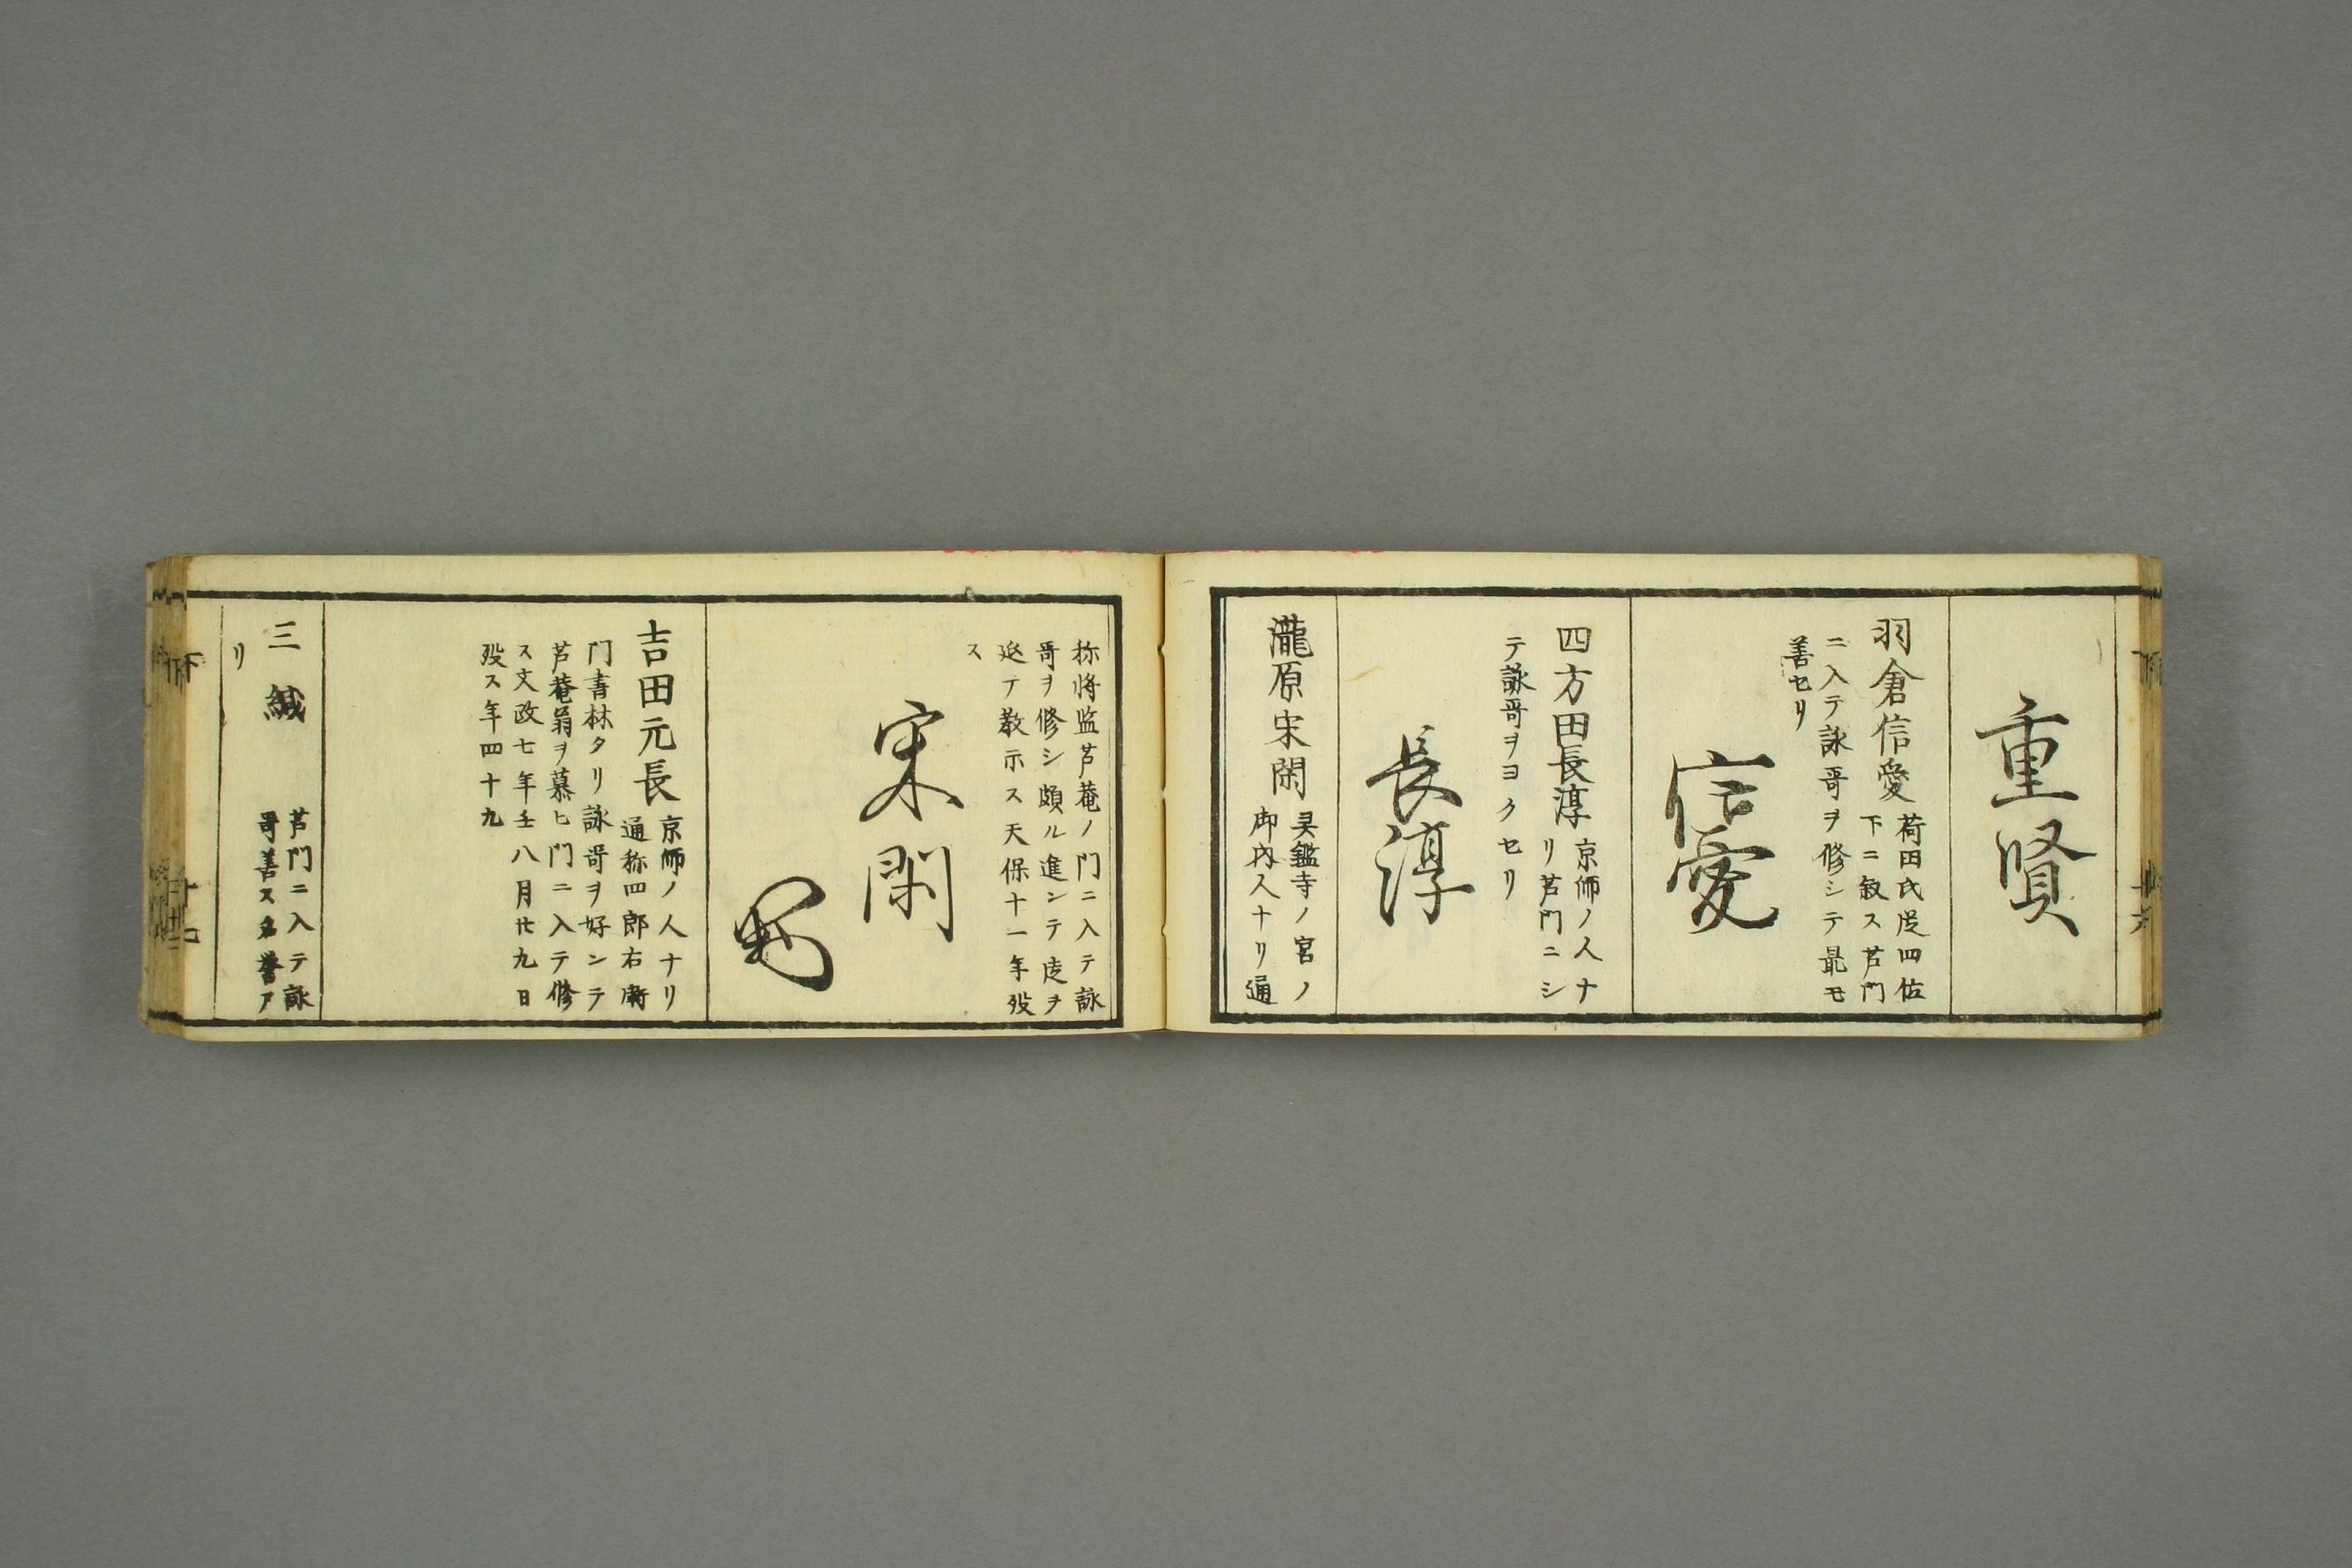 重賢
羽倉信愛
荷田氏世四佐
下ニ叙ス芦門
ニ入テ詠哥ヲ修シテ最モ
善セリ
信愛
四方田長淳
京師ノ人ナ
リ芦門ニシ
テ詠哥ヲヨクセリ
長淳
瀧原宋閑
鑑寺ノ宮ノ
御内人ナリ通
称将監芦菴ノ門ニ入テ詠
哥ヲ修シ頗ル進ンテ徒ヲ
延テ教示ス天保十一年歿
ス
宋閑
吉田元長
京師ノ人ナリ
通称四郎右衛
門書林タリ詠哥ヲ好ンテ
芦菴翁ヲ慕ヒ門ニ入テ修
ス文政七年壬八月廿九日
歿ス年四十九
三緘
芦門ニ入テ詠
哥善ス名誉ア
リ